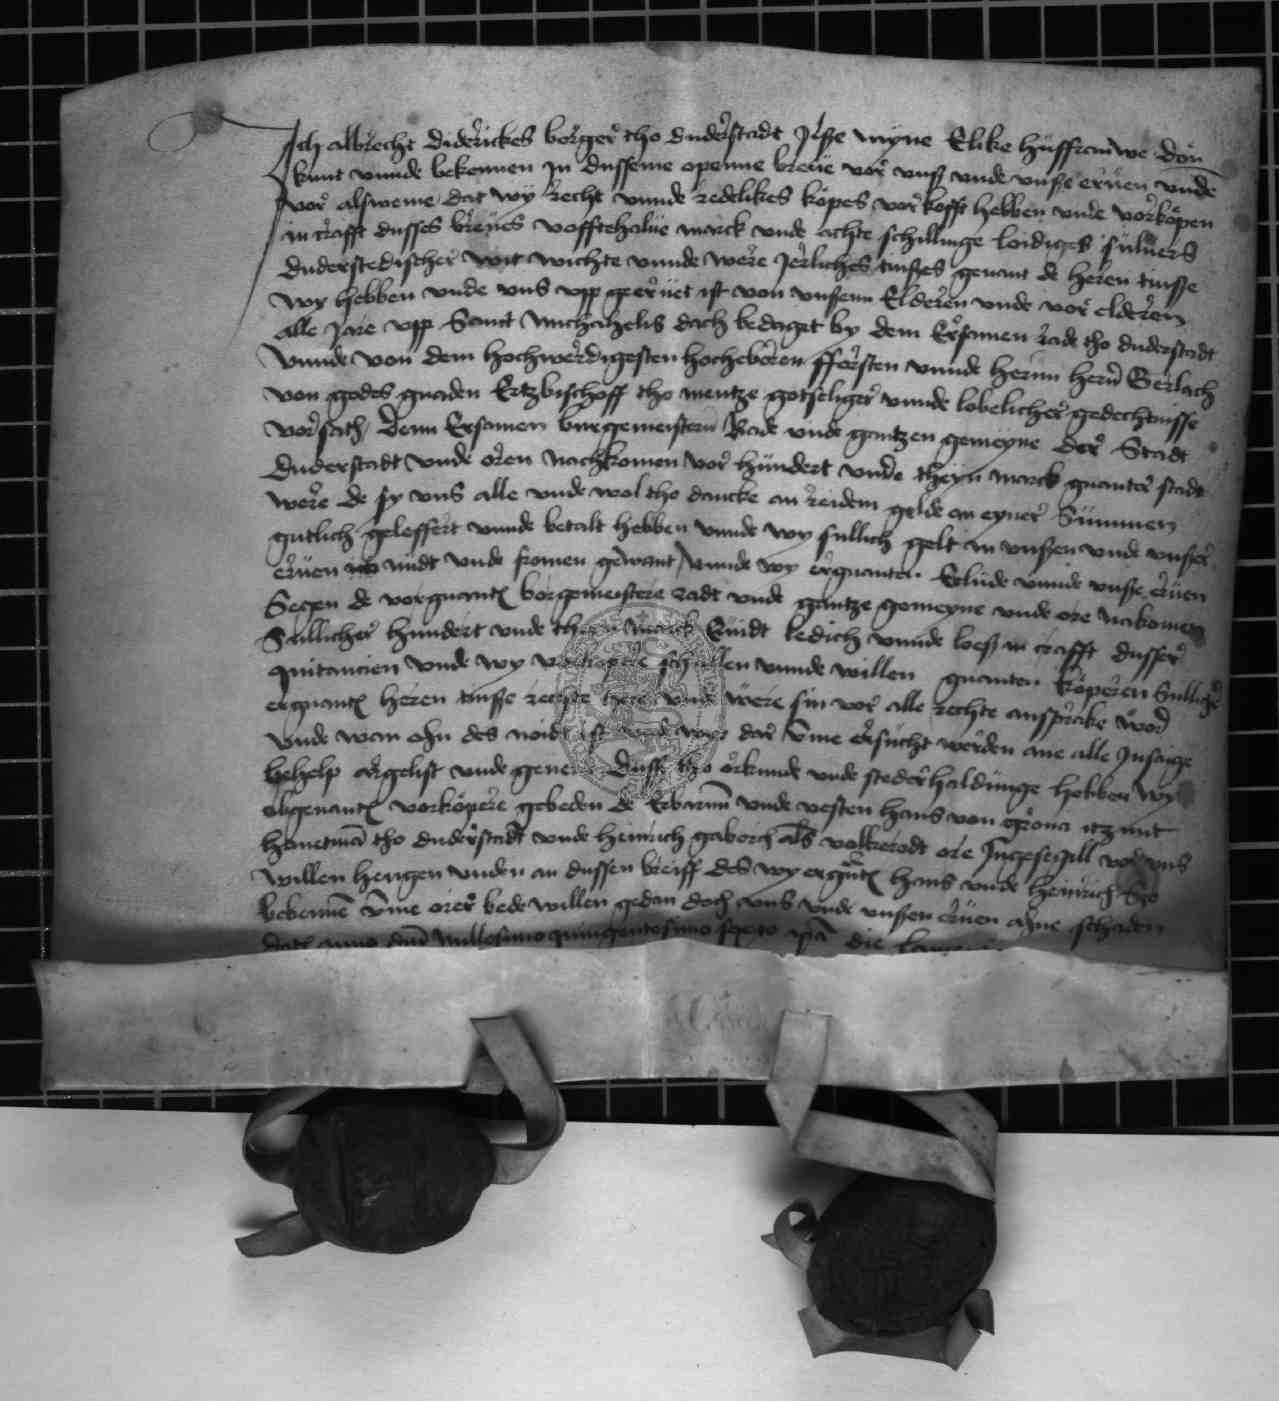 Ich albrecht diderickes borger tho duderstadt Ilsse myne Elike hußfrauwe don
kunt vnnde bekennen Jn dusseme openne breue vor vnß vnde vnße eruen vnde
vor alsweme dat wy recht vnnde redelikes kopes vorkofft hebben vnde vorkopen
in crafft dusses breues vofftehalue marck vnde achte schillinge lodiges suluers
duderstedischer wit wichte vnnde were Jerliches tinßes genant de heren tinsse
wy hebben vnde vns vpp geeruet ist von vnßenn Elderen vnde vor elderen
alle Jare vpp Sanct Michahelis dach bedaget by dem Ersamen rade tho duderstadt
vnnde von dem hochwerdigesten hocheboren ffersten vnnde hernn hern Gerlach
von godes gnaden Ertzbischoff tho mentze gotseliger vnnde lobelicher gedechtnisse
vorsath Denn Ersamen burgemestern Rade vnde gantzen gemeyne der Stadt
duderstadt vnde oren nachkomen vor hundert vnde theyn marck gnanter stadt
were de sy vns alle vnde wol tho dancke an reidem gelde an eyner Summen
gutlich geleffert vnnde betalt hebben vnnde wy sullich gelt in vnßen vnde vnßer
eruen nudt vnde fromen gewant vnnde wy ergnanten Elude vnnde vnße eruen
Segen de vorgnanten borgemeistere radt vnde gantze gemeyne vnde ore nakomen
Sullicher hundert vnde theyn marck Quidt ledich vnnde loeß in crafft dusser
quitancien vnde wy vorkopere schullen vnnde willen gnanten koperen Sullicher
ergnanten heren tinsse rechte here vnd were sin vor alle rechte ansprake
vnde wan ohn des noidt ist vnde wy dar vmme ersucht werden ane alle Insaige
behelp argelist vnde geuer Duss tho orkunde vnde steder haldunge hebben wy
obgenanten vorkopere gebeden de Erbarnn vnde vesten hans von grona itzunt
houetman tho duderstadt vnde heinrich als volkerodt ore Ingesegill vor vns
willen hengen vnden an dussen breiff des wy ergnanten hans vnde heinrich So
bekennen vmme orer bede willen gedan doch vns vnde vnßen eruen ahne schaden
Datum anno domini Millesimo quingentesimo sexto ipsa die